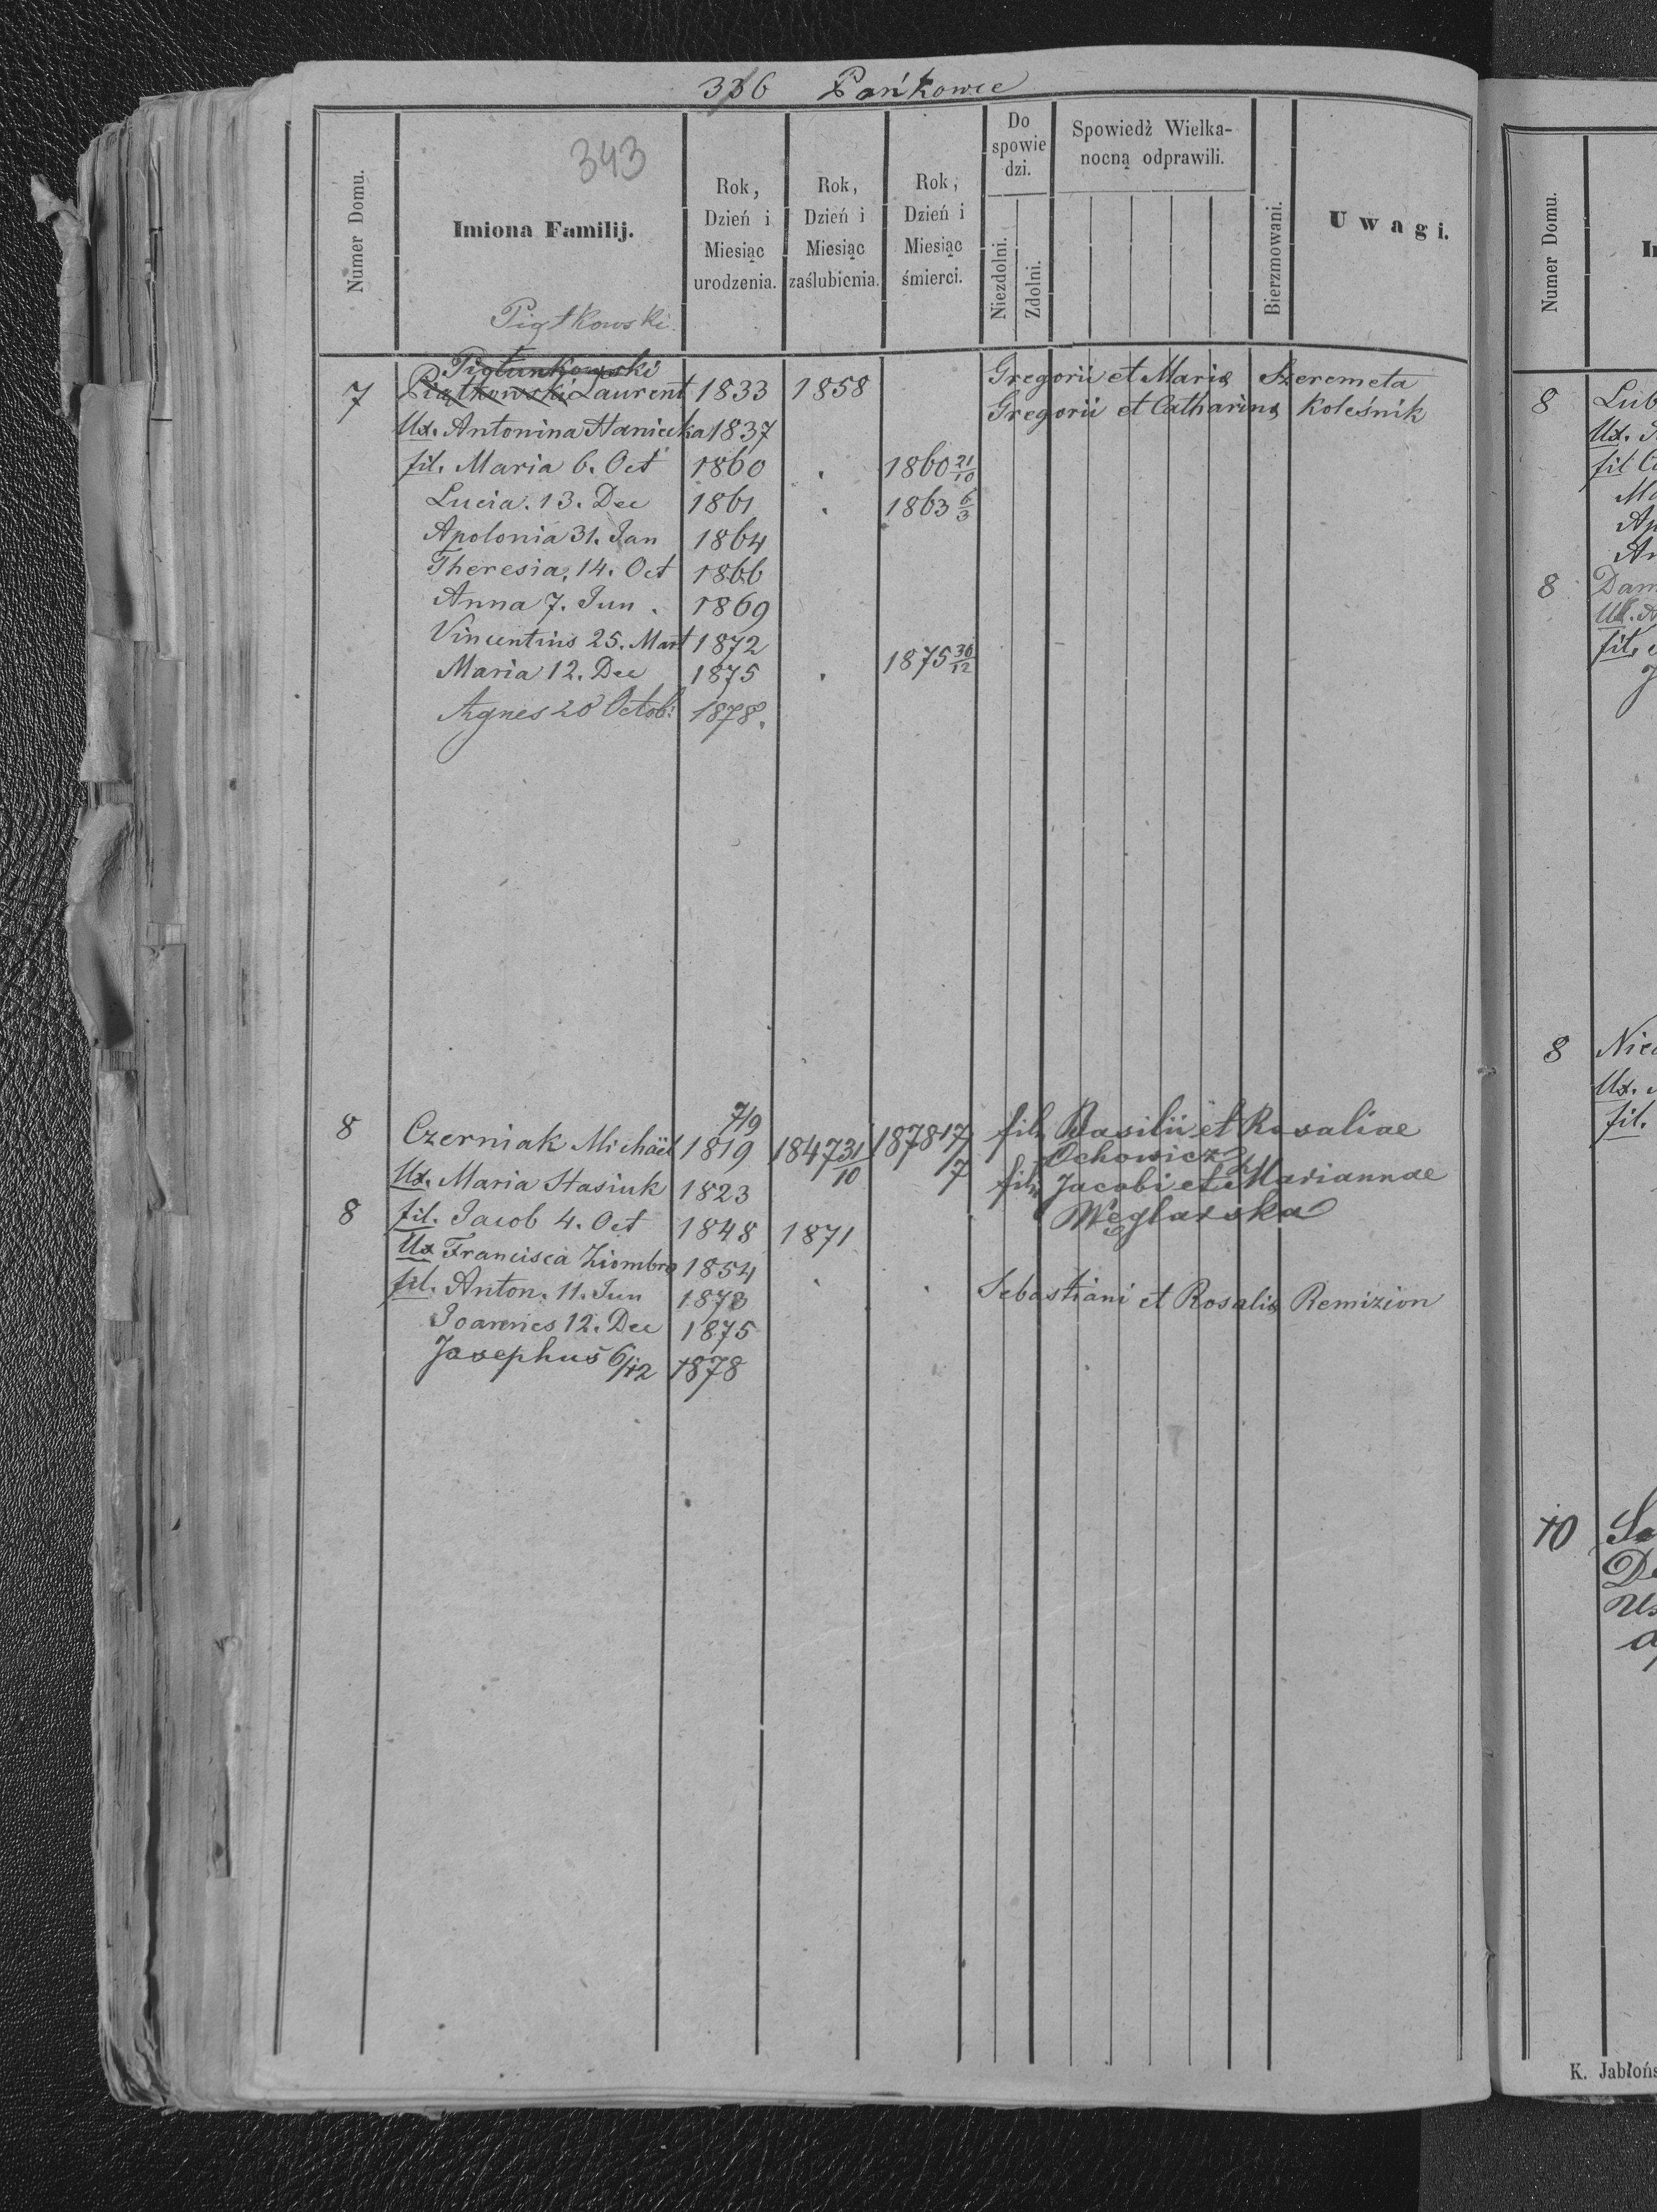 336 Pańkowce
343
Numer Domu.
Imiona Familij.
Rok, Dzień i Miesiąc urodzenia.
Rok, Dzień i Miesiąc zaślubienia.
Rok, Dzień i Miesiąc śmierci.
Do spowiedzi.
Niezdolni.
Zdolni.
Spowiedź Wielkanocną odprawili.
Bierzmowani.
Uwagi.
Piątkowski.
7 Piątkowski Laurent 1833 1858 Gregorii et Maria Szeremeta
Ux. Antonina Haniecka 1837 Gregorii et Catharina Koleśnik
fil. Maria 6. Oct 1860 . 1860 21/10
Lucia. 13. Dec 1861 . 1863 6/3
Apolonia 31. Jan 1864
Theresia, 14. Oct 1866
Anna 7. Jun. 1869
Vincentius 25. Mart 1872
Maria 12. Dec 1875 . 1875 30/12
Agnes 20 Octob: 1878.
8 Czerniak Michäel 7/9 1819 1847 31/10 1878 17/7 fil. Basilii et Rosaliae
Ochowicz
Ux. Maria Stasiuk 1823 fil. Jacobi et Mariannae
Węglarska
8 fil. Jacob 4. Oct 1848 1871
Ux Francisca Ziombra 1854 Sebastiani et Rosalia Remizion
fil. Anton. 11. Jun 1873
Joannes 12. Dec 1875
Josephus 6/12 1878
Numer Domu.
8 Lub
Ux.
fil
Ma
Ap
An
8 Dam
Ux.
fil.
8 Nie
Ux.
fil.
10 So
De
Ux
K. Jabłońs